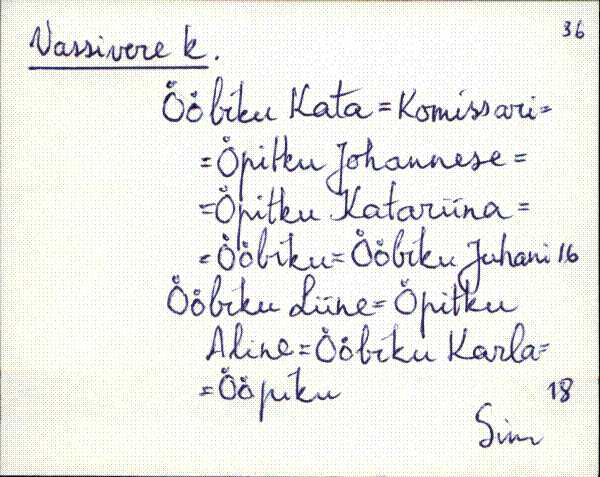 36
Vassivere k.
Ööbiku Kata = Komissari =
= Öpitku Johannese =
= Öpitku Katariina =
= Ööbiku = Ööbiku Juhani 16
Ööbiku Liine = Öpitku
Aline = Ööbiku Karla =
= Ööpiku 18
Sim